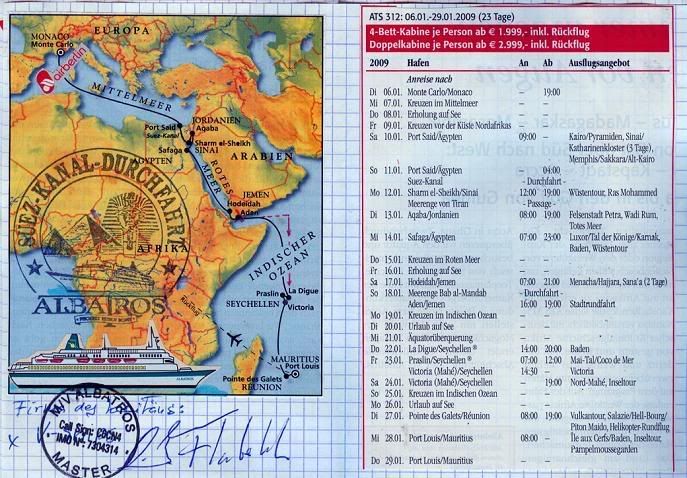 MONACO
Monte Carlo
EUROPA
airberlin
MITTELMEER
Port Said
Suez-Kanal
JORDANIEN
Aqaba
Sharm el-Sheikh
Safaga
SINAI
ÄGYPTEN
ARABIEN
ROTES
MEER
JEMEN
Hodeidah
Aden
SUEZ-KANAL-DURCHFAHRT
AFRIKA
INDISCHER
OZEAN
ALBATROS
Praslin
La Digue
SEYCHELLEN
Victoria
Rückflug
MAURITIUS
Port Louis
Pointe des Galets
RÉUNION
des Kapitäns:
M/V ALBATROS
Call Sign: C6CN4
IMO Nº: 7304314
MASTER
ATS 312: 06.01.-29.01.2009 (23 Tage)
4-Bett-Kabine je Person ab € 1.999,- inkl. Rückflug
Doppelkabine je Person ab € 2.999,- inkl. Rückflug
2009 Hafen An Ab Ausflugsangebot
Anreise nach
Di 06.01. Monte Carlo/Monaco 19:00
Mi 07.01. Kreuzen im Mittelmeer – –
Do 08.01. Erholung auf See – –
Fr 09.01. Kreuzen vor der Küste Nordafrikas – –
Sa 10.01. Port Said/Ägypten 09:00 – Kairo/Pyramiden, Sinai/
Katharinenkloster (3 Tage),
Memphis/Sakkara/Alt-Kairo
So 11.01. Port Said/Ägypten – 04:00
Suez-Kanal - Durchfahrt -
Mo 12.01. Sharm el-Sheikh/Sinai 12:00 19:00 Wüstentour, Ras Mohammed
Meerenge von Tiran - Passage -
Di 13.01. Aqaba/Jordanien 08:00 19:00 Felsenstadt Petra, Wadi Rum,
Totes Meer
Mi 14.01. Safaga/Ägypten 07:00 23:00 Luxor/Tal der Könige/Karnak,
Baden, Wüstentour
Do 15.01. Kreuzen im Roten Meer – –
Fr 16.01. Erholung auf See – –
Sa 17.01. Hodeidah/Jemen 07:00 21:00 Menacha/Hajjara, Sana'a (2 Tage)
So 18.01. Meerenge Bab al-Mandab - Durchfahrt -
Aden/Jemen 16:00 19:00 Stadtrundfahrt
Mo 19.01. Kreuzen im Indischen Ozean – –
Di 20.01. Urlaub auf See – –
Mi 21.01. Äquatorüberquerung – –
Do 22.01. La Digue/Seychellen ® 14:00 20:00 Baden
Fr 23.01. Praslin/Seychellen ® 07:00 12:00 Mai-Tal/Coco de Mer
Victoria (Mahé)/Seychellen 14:30 – Victoria
Sa 24.01. Victoria (Mahé)/Seychellen – 19:00 Nord-Mahé, Inseltour
So 25.01. Kreuzen im Indischen Ozean – –
Mo 26.01. Urlaub auf See – –
Di 27.01. Pointe des Galets/Réunion 08:00 19:00 Vulkantour, Salazie/Hell-Bourg/
Piton Maido, Helikopter-Rundflug
Mi 28.01. Port Louis/Mauritius 08:00 – Île aux Cerfs/Baden, Inseltour,
Pampelmoussegarden
Do 29.01. Port Louis/Mauritius – –